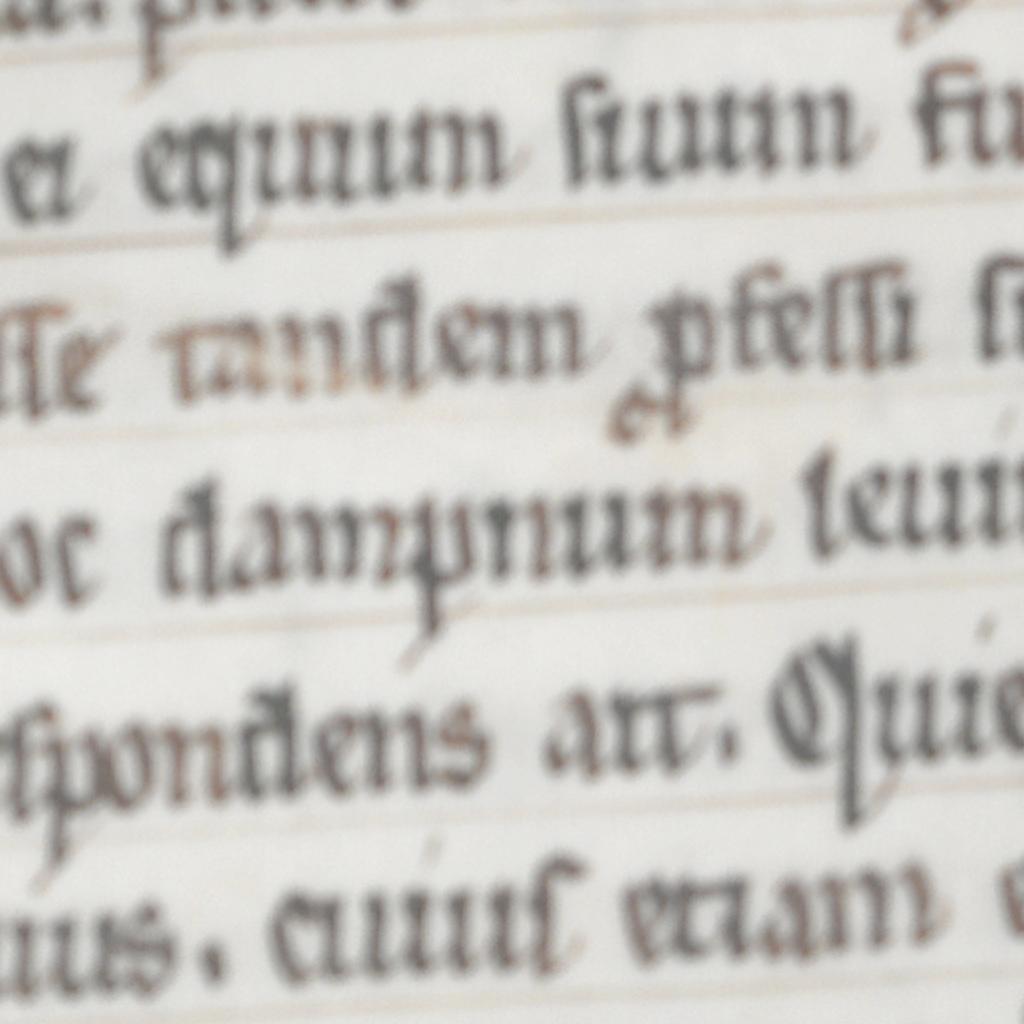 ei equum suum fu
sse tandem pfessi su
oc dampnum leui
spondens ait. Qui
uius. cuius etiam